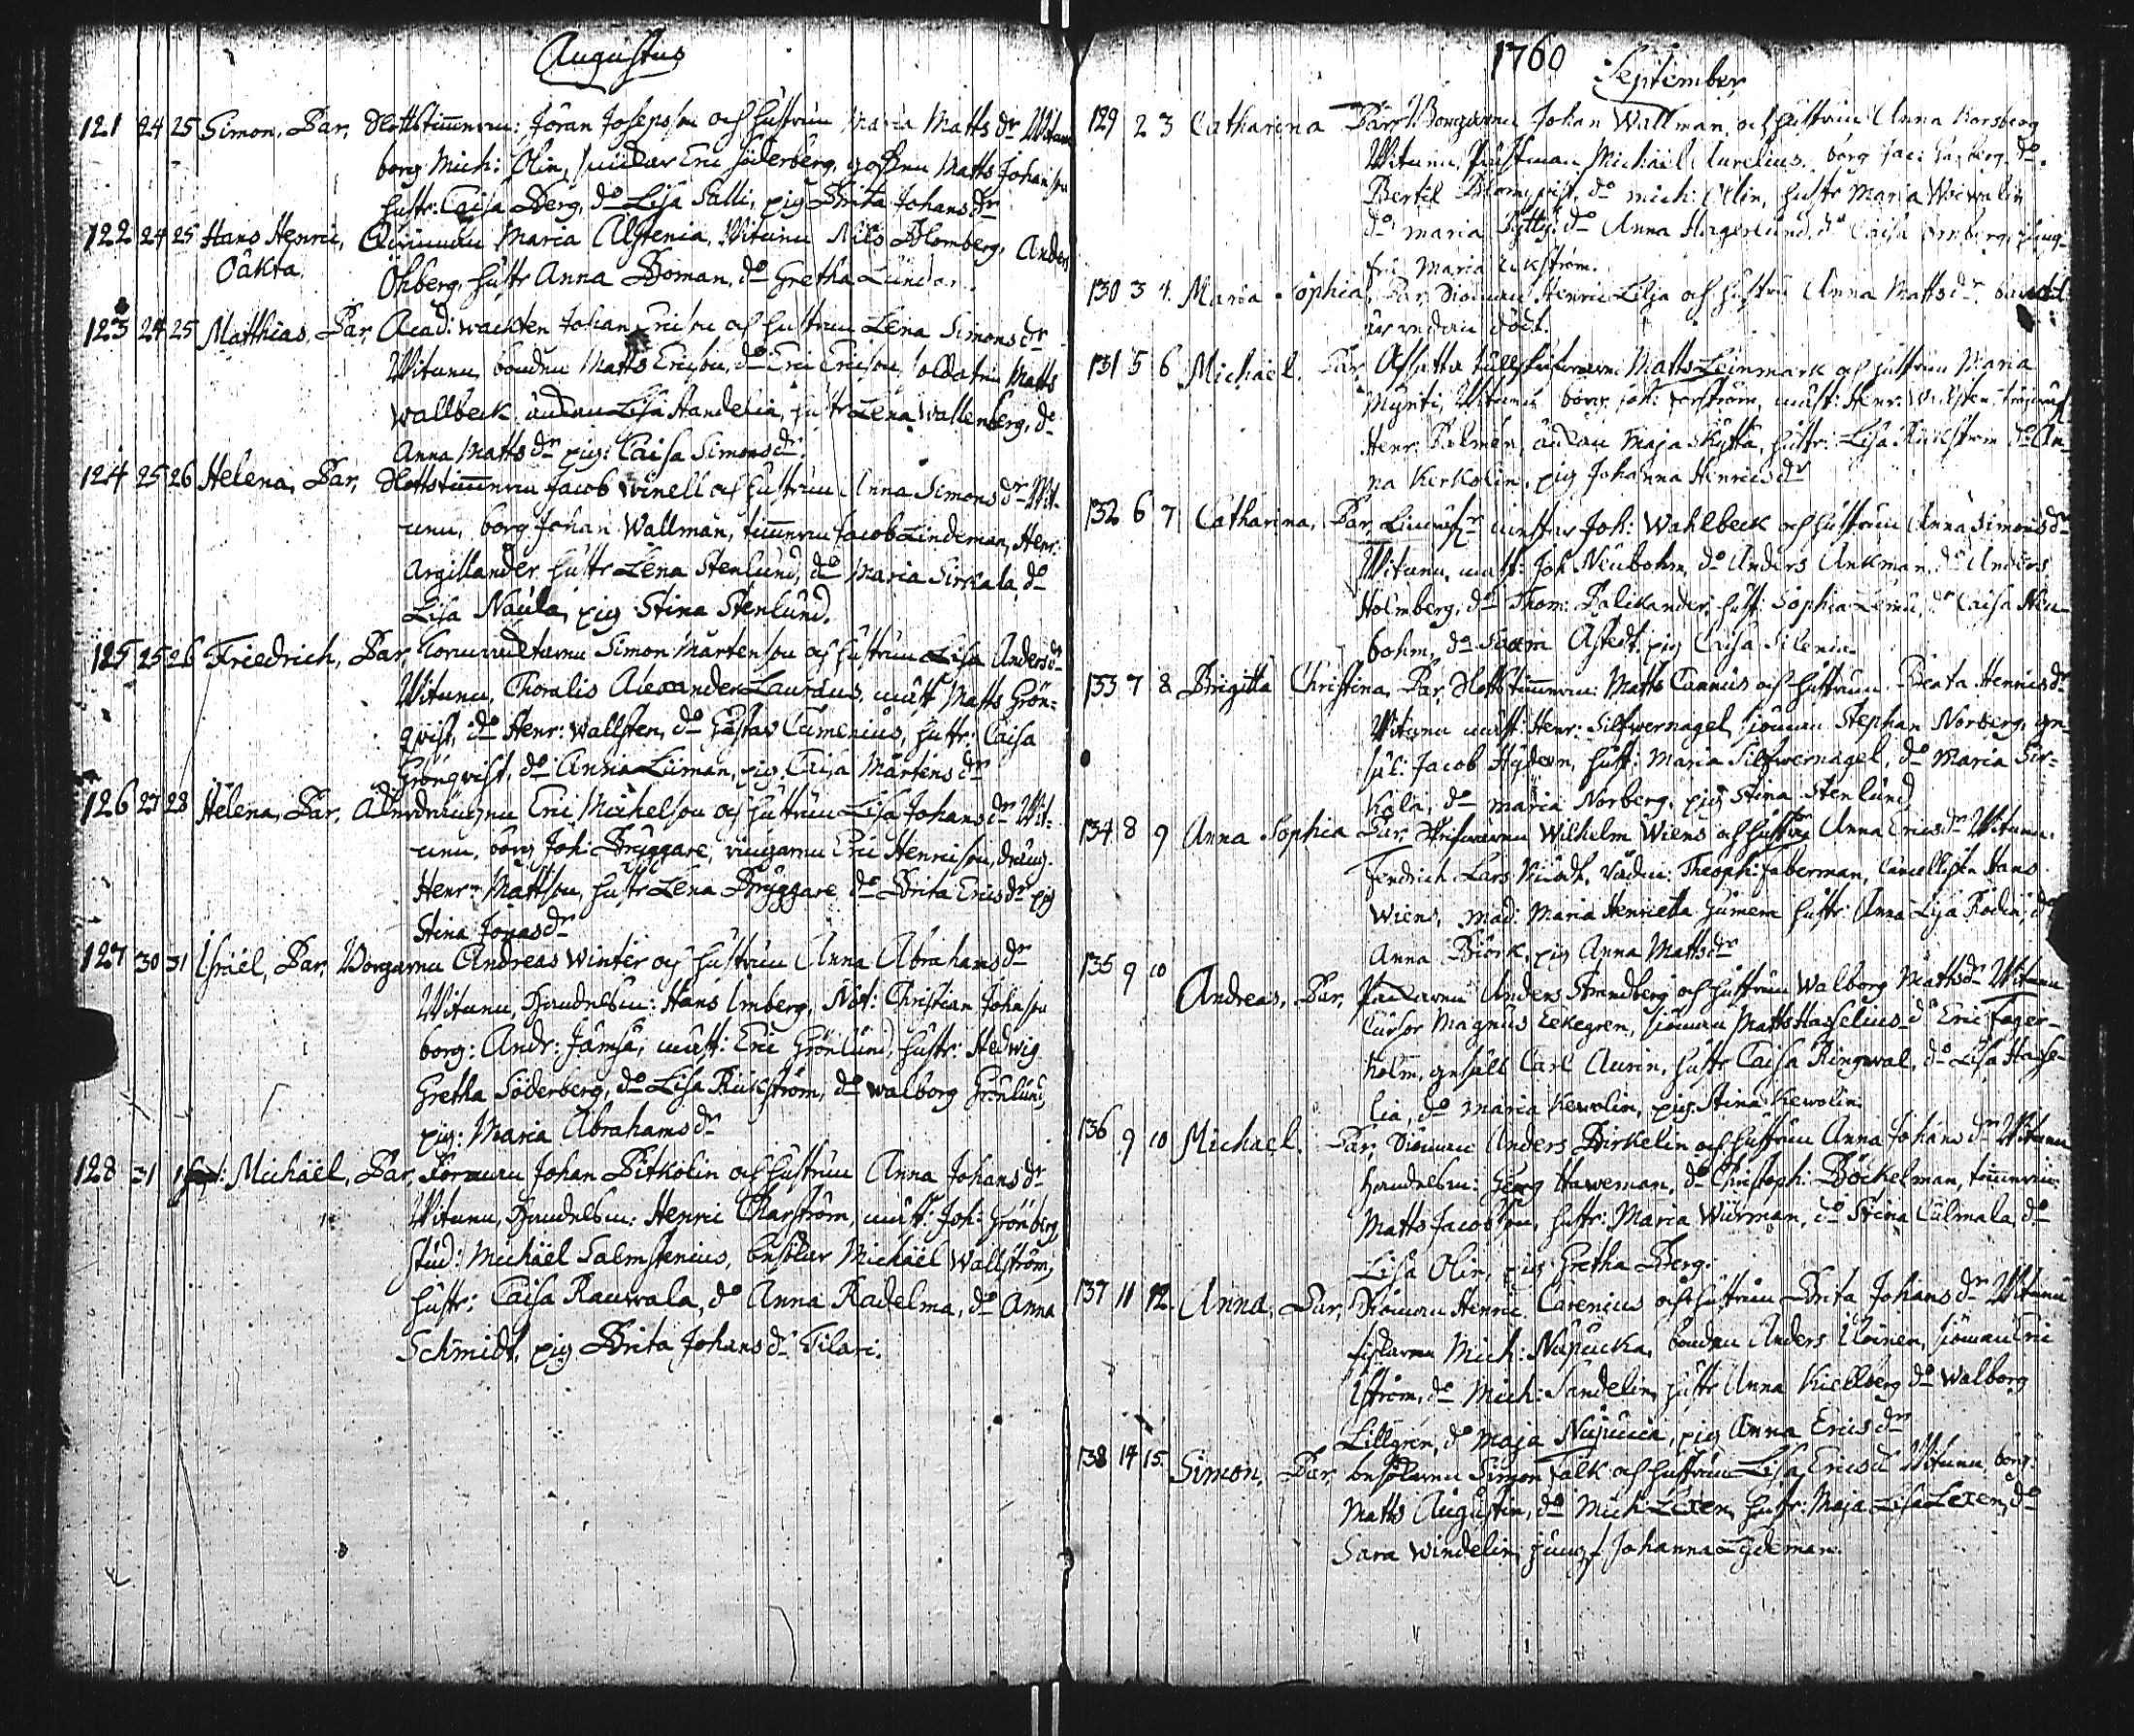 Augustus
121 24 25 Simon, Par, Slottstimmerm: Jöran Josepsson och hustrun Maria Matts dr Wittnen
borg Mich: Olin, Eric Söderberg, Matts Johansson
hustr: Caisa Berg, do Lisa Salli, pig Brita Johans dr
122 24 25 Hans Henric, Qvinnan Maria Alstenia, Witnen Nils Blomberg, Anders
Oäkta Öhberg, hustr Anna Boman, do Gretha
123 24 25 Matthias, Par, Acad: wackten Johan Ericson och hustrun Lena Simons dr
Witnen, bonden Matts Ericson, do Eric Ericson, soldaten Matts
Wallbeck, änkan Lisa Handelia, hustr Lena Wallenberg, do
Anna Matts dr pig: Caisa Simons dr
124 25 26 Helena, Par, Slottstimmerm Jacob Winell och hustrun Anna Simons dr Wit-
nen, borg Johan Wallman, timmerm Jacob Lindeman, Henr:
Argillander, hustr Lena Stenlund, do Maria Sirkala, do
Lisa Naula, pig Stina Stenlund.
125 25 26 Friedrich, Par, Simon Mårtenson och hustrun Lisa Anders dr
Witnen, Choralis Alexander Lauræus, mäst Matts Grön-
qvist, do Henr: Wallsten, do Gustav Cumenius, hustr: Caisa
Grönqvist, do Anna Liman, pig Caisa Mårtens dr
126 27 28 Helena, Par, Eric Michelson och hustrun Lisa Johans dr Wit-
nen, borg Joh: Bryggare, ringaren Eric Henricson, dräng
Henr: Mattson, hustr Lena Bryggare do Brita Erics dr pig
Stina Jonas dr
127 30 31 Israel, Par, Borgaren Andreas Winter och hustrun Anna Abrahams dr
Witnen, Handelsm: Hans Imberg, Not: Christian Johanson
borg: Andr: Jämsä, mäst: Eric Grönlund, hustr: Hedwig
Gretha Söderberg, do Lisa Rickström, do Walborg Grönlund,
pig: Maria Abrahams dr
128 31 1 Sept: Michäel, Par, Johan Pitkolin och hustrun Anna Johans dr
Witnen, Handelsm: Henric Charström, mäst: Joh: Grönberg
Stud: Michäel Salmstenius, besökar Michäel Wallström,
hustr: Caisa Rauwala, do Anna Radelma, do Anna
Schmidt, pig Brita Johans dr Tilari.
1760
September
129 2 3 Catharina Par, Borgaren Johan Wallman, och hustrun Anna Korsberg
Witnen, Michäel Aurelius, borg
Bertil Blomqvist, do Mich: Ollin, hustr Maria
do Maria Pytty, do Anna Hagerlund, do Caisa jung-
fru Maria Eckström.
130 3 4 Maria Sophia, Par, Siöman Henric Lilja och hustru Anna Matts dr
är redan död.
131 5 6 Michäel. Par, Matts Leinmark och hustrun Maria
Mynti, Witnen borg: Joh: mäst: Henr: Wallsten,
Henr: Palmen, änkan Maja Skytta, hustr: Lisa Rickström do An-
na Kerkolin, pig Johanna Henrics dr
132 6 7 Catharina, Par, Joh: Wahlbeck och hustrun Anna Simons dr
Witnen, mäst: Joh Neubohm, do Anders Ankman, do Anders
Holmberg, do Thom: Palikander, hust: Sophia do Caisa Neu-
bohm, do pig Caisa Silenia.
133 7 8 Brigitta Christina, Par, Slottstimmerm: Matts Cannius och hustrun Beata Henrics dr
Witnen mäst: Henr: Silfwernagel, siöman Stephan Norberg, ge-
säl: Jacob hust: Maria Silfwernagel, do Maria Sir-
kala, do Maria Norberg, pig Stina Stenlund,
134 8 9 Anna Sophia Par, Skrifwaren Wilhelm Wiens och hustru Anna Erics dr Witnen.
Fendrich Lars Theoph: Faberman, Cancellisten Hans
Wiens, Mad: Maria Henrietta hustr: Anna Lisa Flodin, do
Anna Biörk, pig Anna Matts dr
135 9 10
Andreas, Par, Anders Strandberg och hustrun Walborg Matts dr Witnen
Cursor Magnus Eekegren, siöman Matts Hasselius do Eric Fager-
holm, gesäll Carl Aurin, hustr Caisa Ringwal, do Lisa Hasse-
lia, do Maria Kewolin, pig: Stina Kewolin.
136 9 10 Michael. Par, Siöman Anders Birkelin och hustrun Anna Johans dr Witnen
Handelsm: Georg Haweman, do Christoph: Böckelman, timmerm:
Matts Jacobson, hustr: Maria Wirman, do Stina Culmala do
Lisa Olin, pig Gretha Berg.
137 11 12. Anna, Par, Siöman Henric Carenius och hustrun Brita Johans dr Witnen
fiskaren Mich: Nupucka, bonden Anders siöman Eric
Uström, do Mich: Sandelin, hustr Anna Kiellberg do Walborg
Lillgren, do Maja pig Anna Erics dr
138 14 15. Simon, Par, besökaren Simon Falk och hustrun Lisa Erics dr Witnen, borg:
Matts Augustin, do Mich: Lexen, hustr: Maja Lisa Lexen, do
Sara Windelin, jungf Johanna Lydeman.